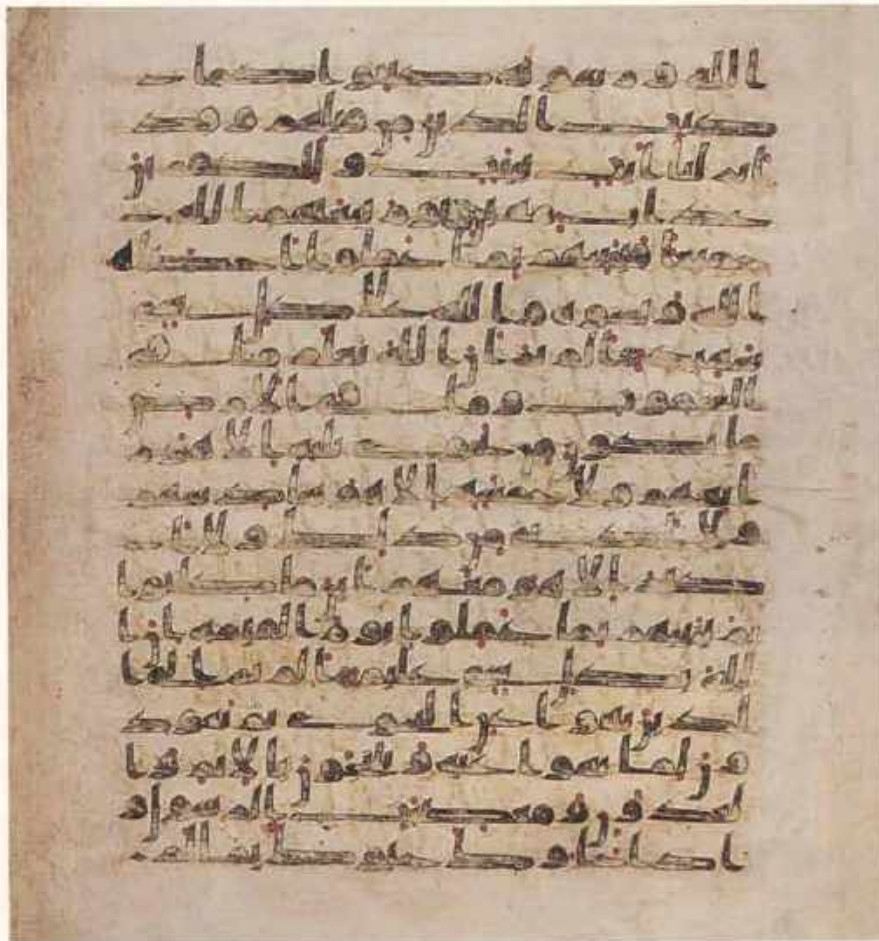 الله ورسوله كبتوا كما
كبت الذين من قبلهم وقد
انزلنا ايت بينت وللكفرين
عذاب مهين يوم يبعثهم الله
جميعا فينبئهم بما عملوا احصه
الله ونسوه والله على كل شي
شهيد الم تر ان الله يعلم ما في
السموت وما في الارض
ما يكون من نجوى ثلثة الا هو ر
ابعهم ولا خمسة الا هو سادسهم
ولا ادنى من ذلك ولا ا
كثر الا هو معهم اين ما كانوا ثم
ينبئهم بما عملوا يوم القيمة ان ا
لله بكل شي عليم الم تر الى ا
لذين نهوا عن النجوى ثم يعود
ون لما نهوا عنه ويتنجون بالاثم وا
لعدون ومعصيت الرسول واذ
ا جاوك حيوك بما لم